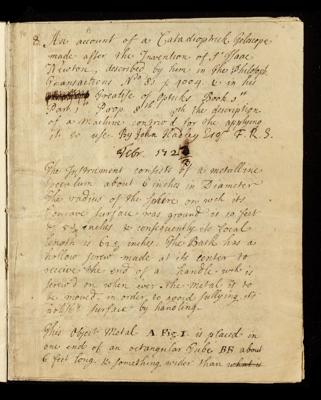 An account of a Catadioptrick Telescope
made after the Invention of Sr Isaac
Newton, described by him in the Philosoph.
Transactions No 81 p. 4004 & in his
Treatise of Opticks Book 1st
Part 1st Prop. 8th wth the description
of a Machine contriv'd for the applying
it to use By John Hadley Esqr F. R. S.
The Instrument consists of a metalline
Speculum about 6 inches in Diameter
The radius of the Sphere on wch its
Concave surface was ground is 10 feet
& 5½ inches & consequently its focal
length is 62¾ inches. The Back has a
hollow screw made at its center to
receive the end of a handle wch is
screw'd on when ever the metal is to
be moved in order to avoid sullying its
polish'd surface by handling.
This Object Metal A Fig. I is placed in
one end of an octangular Tube BB about
6 feet long & something wider than what is